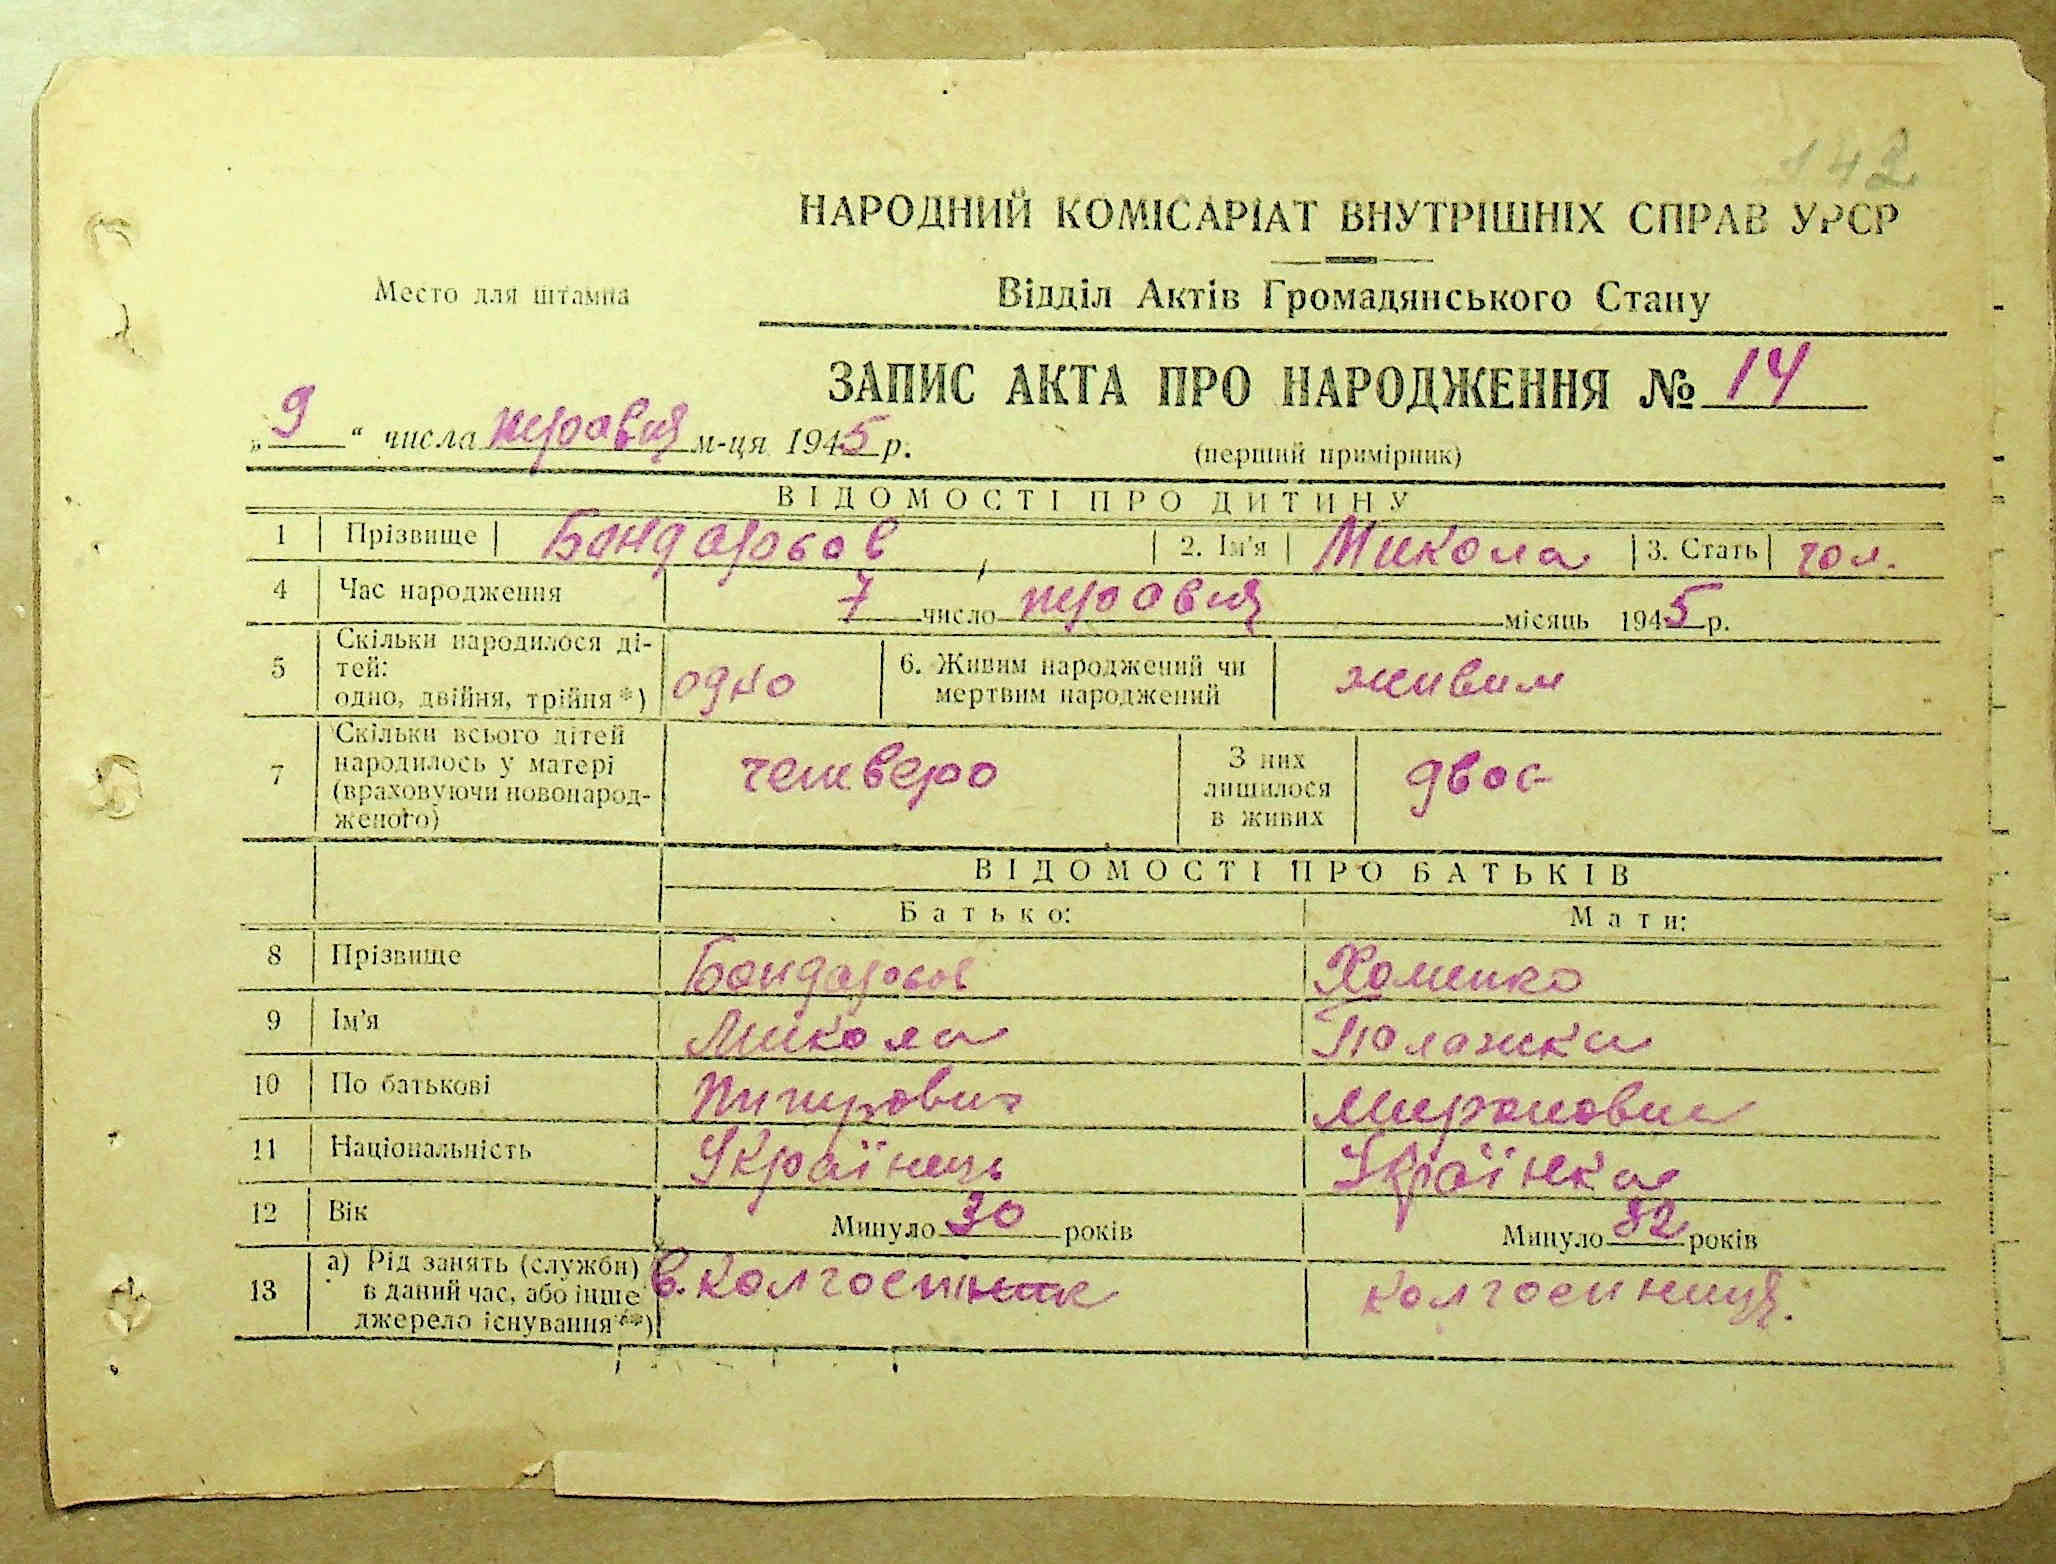 142
НАРОДНИЙ КОМІСАРІАТ ВНУТРІШНІХ СПРАВ УРСР
Место для штампа
Відділ Актів Громадянського Стану
ЗАПИС АКТА ПРО НАРОДЖЕННЯ № 14
„9“ числа травня м-ця 1945 р.
(перший примірник)
ВІДОМОСТІ ПРО ДИТИНУ
1 Прізвище Бондарьов 2. Ім'я Микола 3. Стать чол.
4 Час народження 7 число травня місяць 1945 р.
5 Скільки народилося ді-
тей:
одно, двійня, трійня*) одно
6. Живим народжений чи
мертвим народжений живим
7 Скільки всього дітей
народилось у матері
(враховуючи новонарод-
женого) четверо
З них
лишилося
в живих двоє
ВІДОМОСТІ ПРО БАТЬКІВ
Батько: Мати:
8 Прізвище Бондарьов Хоменко
9 Ім'я Микола Полажка
10 По батькові Миронови
11 Національність Українець Українка
12 Вік Минуло 30 років Минуло 32 років
13 а) Рід занять (служби)
в даний час, або інше
джерело існування**) в. колгоспник колгоспниця.